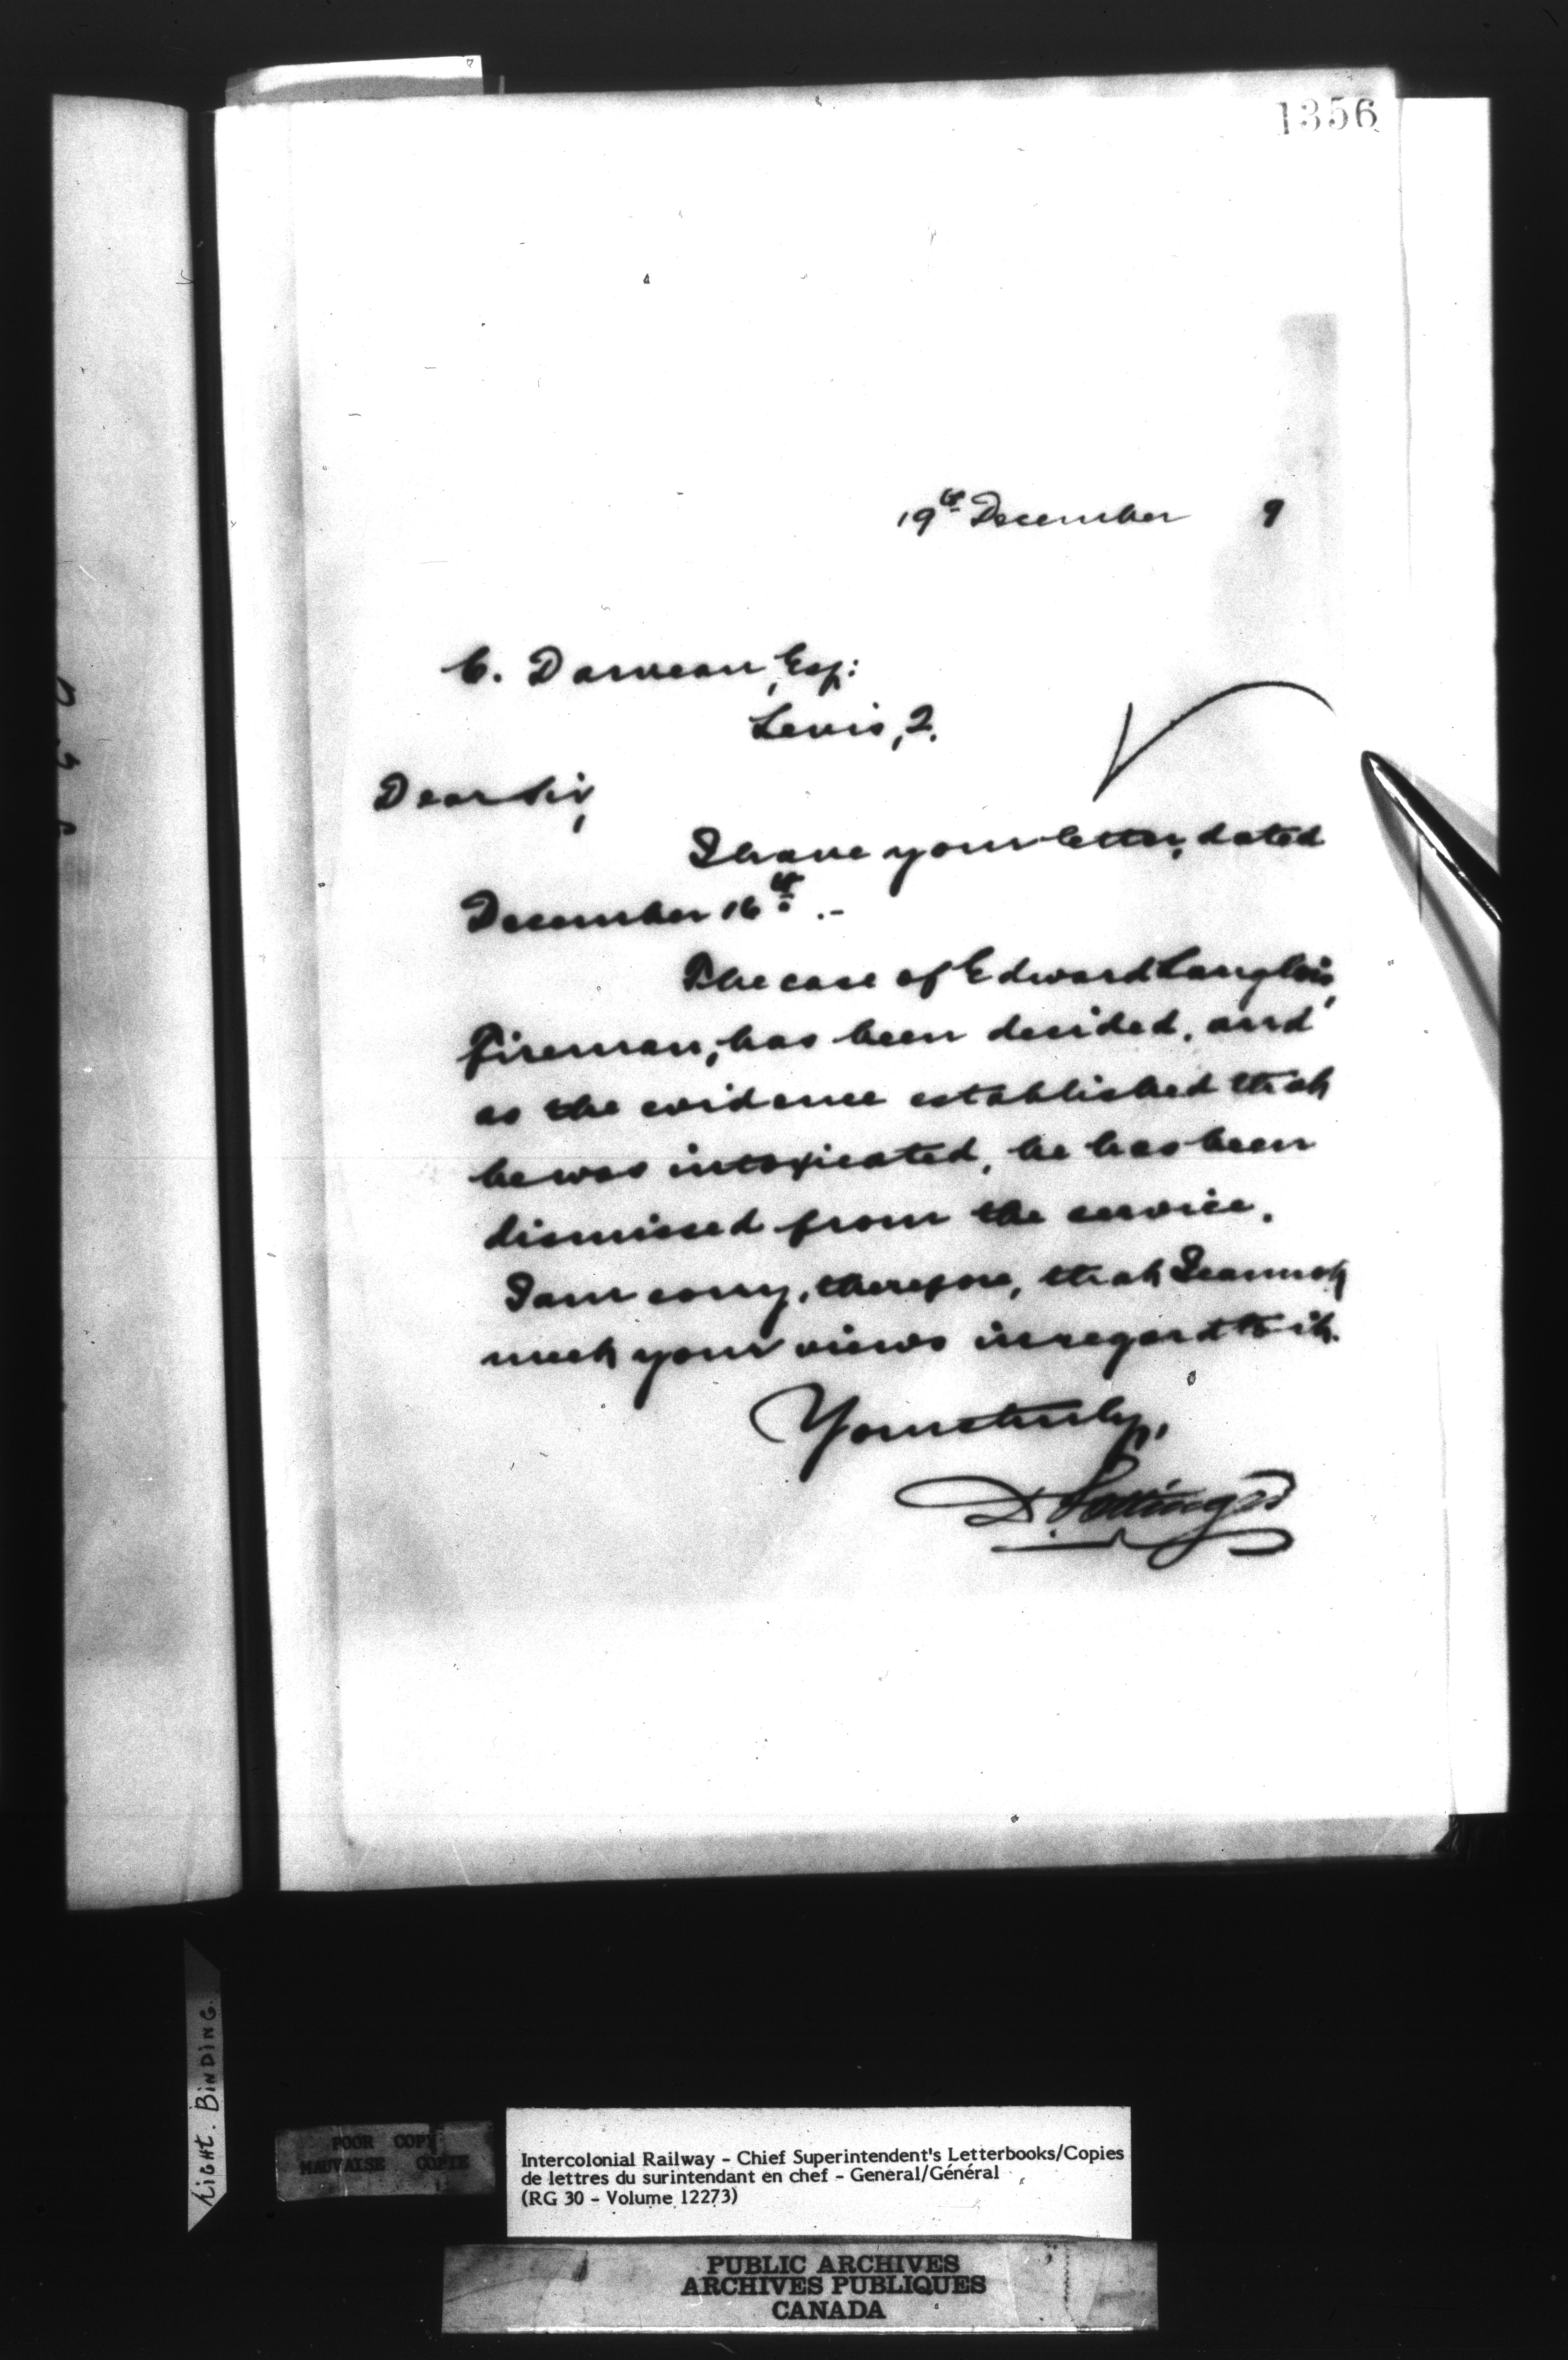 1356
19th December 9
C. Darveau, Esq:
Levis, Q.
Dear Sir,
I have your letter, dated
December 16th.-
The case of Edward Langlois,
fireman, has been decided, and
as the evidence established that
he was intoxicated, he has been
dismissed from the service.
I am sorry, therefore, that I cannot
meet your views in regard to it.
Yours truly,
D. Pottinger
TIGHT. BINDING.
POOR COPY
MAUVAISE COPIE
Intercolonial Railway - Chief Superintendent's Letterbooks/Copies
de lettres du surintendant en chef - General/Général
(RG 30 - Volume 12273)
PUBLIC ARCHIVES
ARCHIVES PUBLIQUES
CANADA